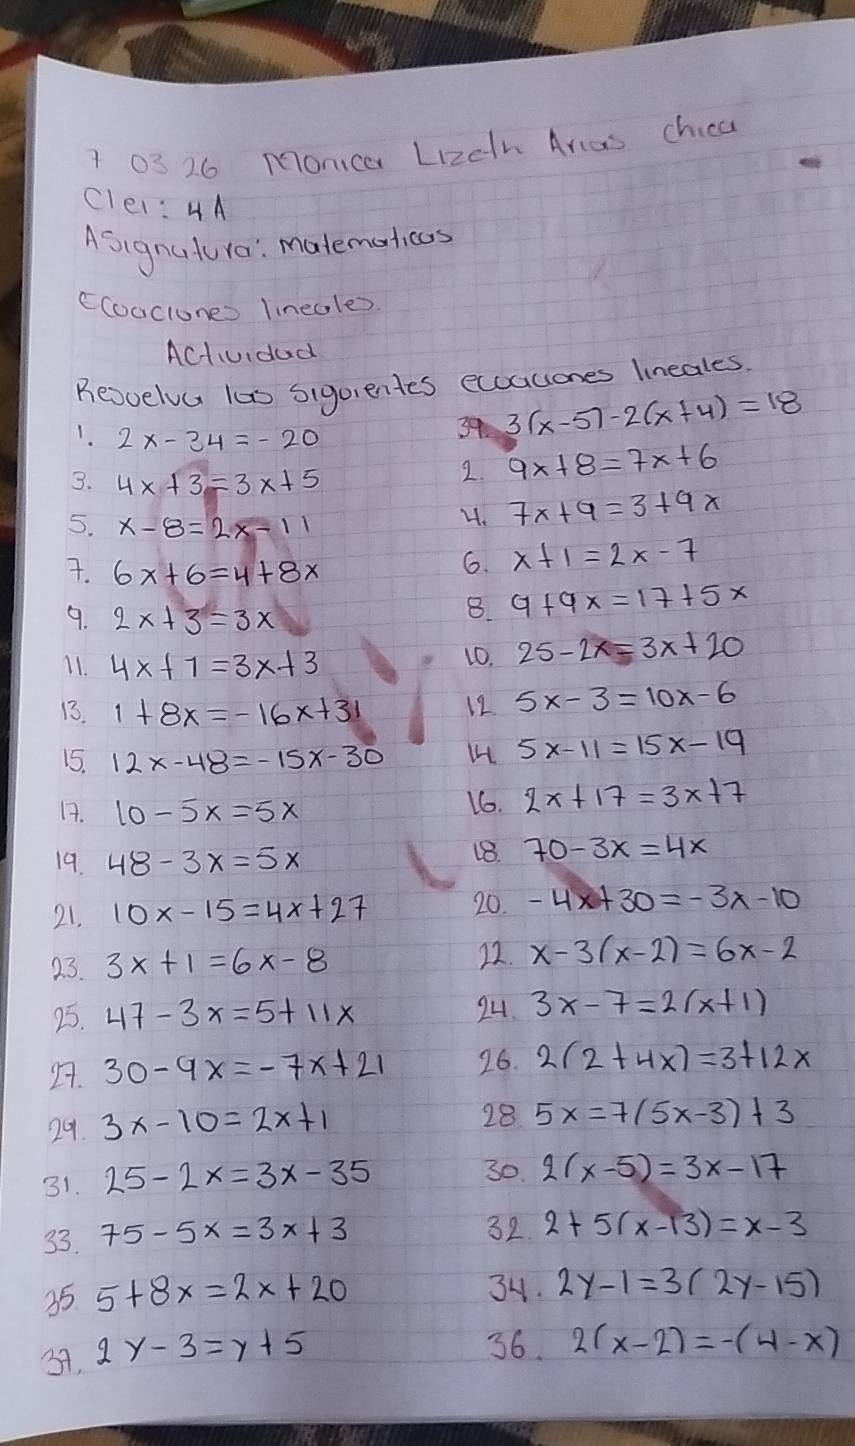 7 03 26 Monica Lizeth Arias chica
Clei: 4A
Asignatura: matematicas
Ecoaciones lineales.
Actividad
Resuelva las siguientes ecuaciones lineales.
1. 2x-34=-20
39. 3(x-5)-2(x+4)=18
3. 4x+3=3x+5
2. 9x+8=7x+6
5. x-8=2x-11
4. 7x+9=3+9x
7. 6x+6=4+8x
6. x+1=2x-7
9. 2x+3=3x
8. 9+9x=17+5x
11. 4x+1=3x+3
10. 25-2x=3x+20
13. 1+8x=-16x+31
12 5x-3=10x-6
15. 12x-48=-15x-30
14 5x-11=15x-19
17. 10-5x=5x
16. 2x+17=3x+7
19. 48-3x=5x
18 70-3x=4x
21. 10x-15=4x+27
20. -4x+30=-3x-10
23. 3x+1=6x-8
22. x-3(x-2)=6x-2
25. 47-3x=5+11x
24. 3x-7=2(x+1)
27. 30-9x=-7x+21
26. 2(2+4x)=3+12x
29. 3x-10=2x+1
28 5x=7(5x-3)+3
31. 25-2x=3x-35
30. 2(x-5)=3x-17
33. 75-5x=3x+3
32. 2+5(x-13)=x-3
35 5+8x=2x+20
34. 2y-1=3(2y-15)
37. 2y-3=y+5
36. 2(x-2)=-(4-x)